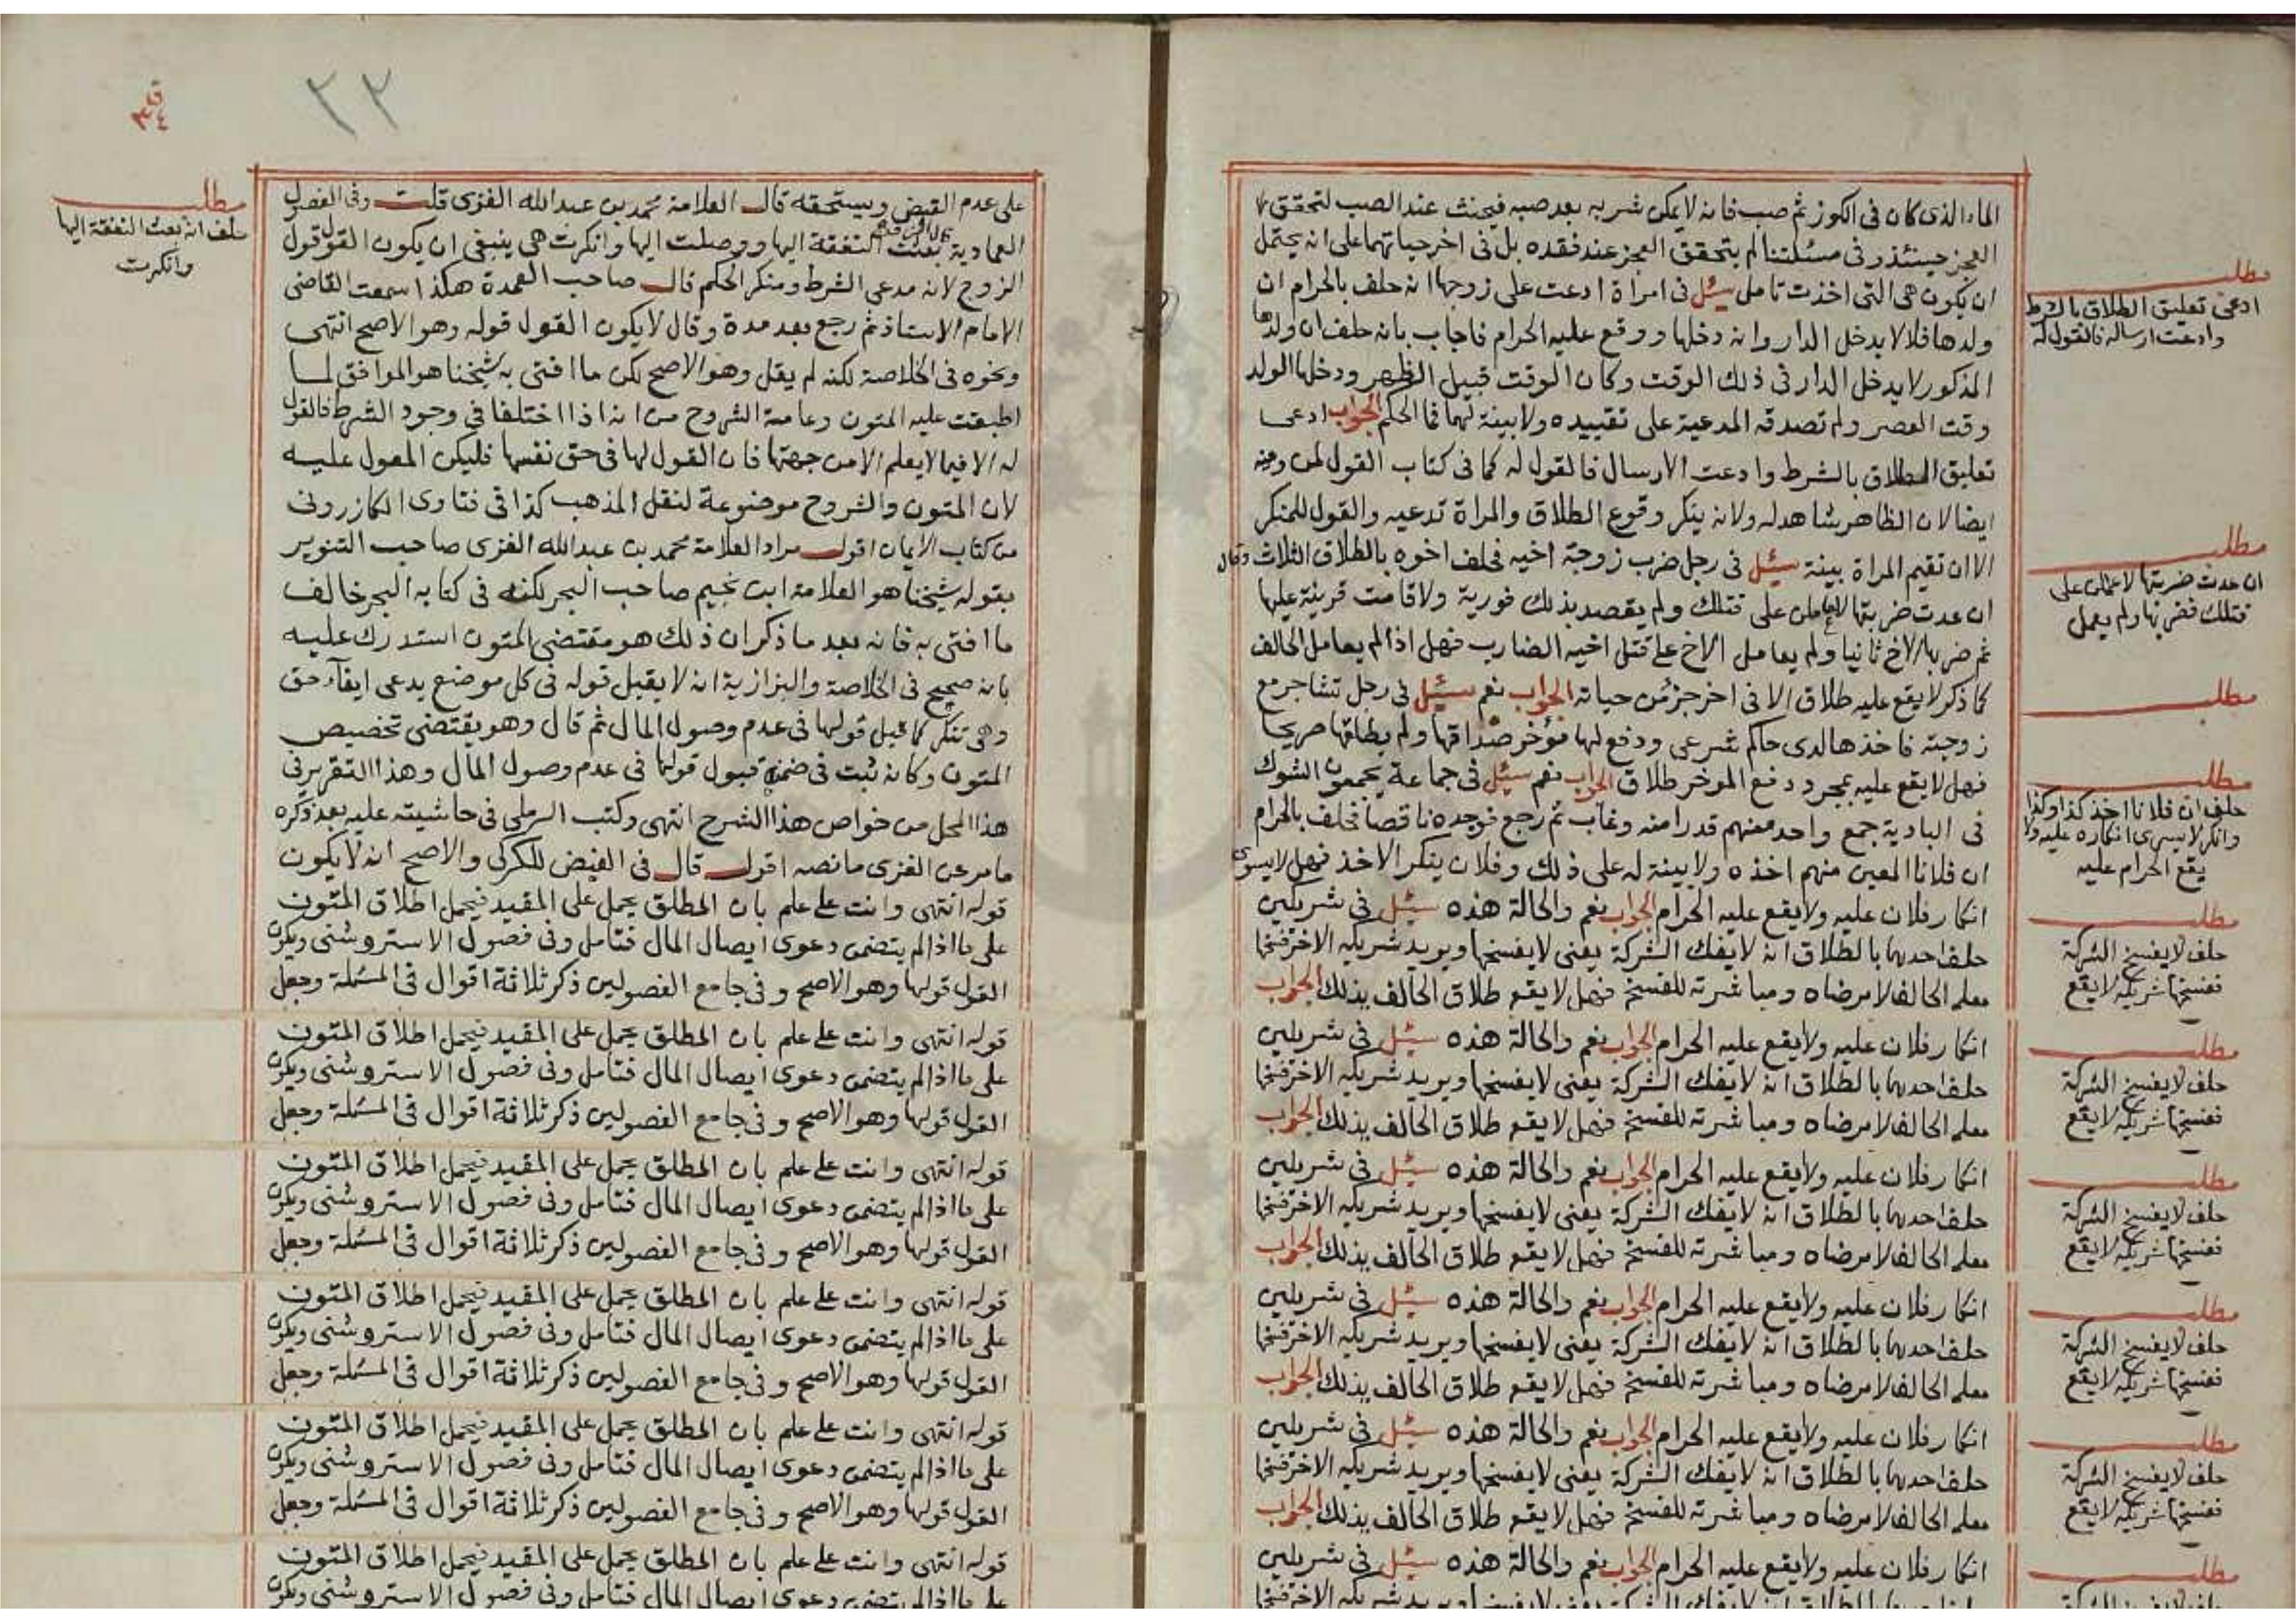 الماء الذى كان فى الكوز ثم صب فانه لا يمكن شربه بعد صبه فيحنث عند الصب لتحقق
العجز حينئذ وفى مسئلتنا لم يتحقق العجز عند فقده بل فى اخر حياتهما على انه يحتمل
ان يكون هى التى اخذت تامل سئل فى امراة ادعت على زوجها انه حلف بالحرام ان
ولدها فلا لا يدخل الدار وانه دخلها ووقع عليه الحرام فاجاب بانه حلف ان ولدها
المذكور لا يدخل الدار فى ذلك الوقت وكان الوقت قبيل الظهر ودخلها الولد
وقت العصر ولم تصدقه المدعية على تقييده ولا بينة لهما فما الحكم الجواب ادعى
تعليق الطلاق بالشرط وادعت الارسال فالقول له كما فى كتاب القول لمن وفيه
ايضا لان الظاهر شاهد له ولانه ينكر وقوع الطلاق والمراة تدعيه والقول للمنكر
الا ان تقيم المراة بينة سئل فى رجل ضرب زوجة اخيه فحلف اخوه بالطلاق الثلاث وقال
ان عدت ضربتها لاعاملن على قتلك ولم يقصد بذلك فورية ولا قامت قرينة عليها
ثم ضربها الاخ ثانيا ولم يعامل الاخ على قتل اخيه الضارب فهل اذا لم يعامل الحالف
كما ذكر لا يقع عليه طلاق الا فى اخر جزء من حياته الجواب نعم سئل فى رجل تشاجر مع
زوجته فاخذها لدى حاكم شرعى ودفع لها مؤخر صداقها ولم يطلقها صريحا
فهل لا يقع عليه بمجرد دفع الموخر طلاق الجواب نعم سئل فى جماعة يجمعون الشوك
فى البادية جمع واحد منهم قدرا منه وغاب ثم رجع فوجده ناقصا فحلف بالحرام
ان فلانا المعين منهم اخذه ولا بينة له على ذلك وفلان ينكر الاخذ فهل لا يسرى
انكار فلان عليه ولا يقع عليه الحرام الجواب نعم والحالة هذه سئل فى شريكين
حلف احدهما بالطلاق انه لا يفك الشركة يعنى لا يفسخها ويريد شريكه الاخر فسخها
معلم الحالف لا مرضاه ومباشرته للفسخ فهل لا يقع طلاق الحالف بذلك الجواب
انكار فلان عليه ولا يقع عليه الحرام الجواب نعم والحالة هذه سئل فى شريكين
حلف احدهما بالطلاق انه لا يفك الشركة يعنى لا يفسخها ويريد شريكه الاخر فسخها
معلم الحالف لا مرضاه ومباشرته للفسخ فهل لا يقع طلاق الحالف بذلك الجواب
انكار فلان عليه ولا يقع عليه الحرام الجواب نعم والحالة هذه سئل فى شريكين
حلف احدهما بالطلاق انه لا يفك الشركة يعنى لا يفسخها ويريد شريكه الاخر فسخها
معلم الحالف لا مرضاه ومباشرته للفسخ فهل لا يقع طلاق الحالف بذلك الجواب
انكار فلان عليه ولا يقع عليه الحرام الجواب نعم والحالة هذه سئل فى شريكين
حلف احدهما بالطلاق انه لا يفك الشركة يعنى لا يفسخها ويريد شريكه الاخر فسخها
معلم الحالف لا مرضاه ومباشرته للفسخ فهل لا يقع طلاق الحالف بذلك الجواب
انكار فلان عليه ولا يقع عليه الحرام الجواب نعم والحالة هذه سئل فى شريكين
حلف احدهما بالطلاق انه لا يفك الشركة يعنى لا يفسخها ويريد شريكه الاخر فسخها
معلم الحالف لا مرضاه ومباشرته للفسخ فهل لا يقع طلاق الحالف بذلك الجواب
انكار فلان عليه ولا يقع عليه الحرام الجواب نعم والحالة هذه سئل فى شريكين
مطلب
ادعى تعليق الطلاق بالشرط
وادعت ارساله فالقول له
مطلب
ان عدت ضربتها لاعملن على
قتلك فضربها ولم يعمل
مطلب
مطلب
حلف ان فلانا اخذ كذا وكذا
وانكر لا يسرى انكاره عليه ولا
يقع الحرام عليه
مطلب
حلف لا يفسخ الشركة
ففسخها شريكه لا يقع
مطلب
حلف لا يفسخ الشركة
ففسخها شريكه لا يقع
مطلب
حلف لا يفسخ الشركة
ففسخها شريكه لا يقع
مطلب
حلف لا يفسخ الشركة
ففسخها شريكه لا يقع
مطلب
حلف لا يفسخ الشركة
ففسخها شريكه لا يقع
مطلب
٣٣
على عدم القبض ويستحقه قال العلامة محمد بن عبدالله الغزى قلت وفى الفصول
العمادية بعثت النفقة اليها ووصلت اليها وانكرت هى ينبغى ان يكون القول قول
الزوج لانه مدعى الشرط ومنكر الحكم قال صاحب العمدة هكذا سمعت القاضى
الامام الاستاذ ثم رجع بعد مدة وقال لا يكون القول قوله وهو الاصح انتهى
ونحوه فى الخلاصة لكنه لم يقل وهو الاصح لكن ما افتى به شيخنا هو الموافق لما
اطبقت عليه المتون وعامة الشروح من انه اذا اختلفا فى وجود الشرط فالقول
له الا فيما لا يعلم الا من جهتها فان القول لها فى حق نفسها فليكن المعول عليه
لان المتون والشروح موضوعة لنقل المذهب كذا فى فتاوى الكازرونى
من كتاب الايمان اقول مراد العلامة محمد بن عبدالله الغزى صاحب التنوير
بقوله شيخنا هو العلامة ابن نجيم صاحب البحر لكنه فى كتابه البحر خالف
ما افتى به فانه بعد ما ذكر ان ذلك هو مقتضى المتون استدرك عليه
بانه صحيح فى الخلاصة والبزازية انه لا يقبل قوله فى كل موضع يدعى ايفآء حق
وهى تنكر كما قبل قولها فى عدم وصول المال ثم قال وهو يقتضى تخصيص
المتون وكانه ثبت فى ضمن قبول قولها فى عدم وصول المال وهذا التقرير فى
هذا المحل من خواص هذا الشرح انتهى وكتب الرملى فى حاشيته عليه بعد ذكره
ما مر عن الغزى ما نصه اقول قال فى الفيض للكركى والاصح انه لا يكون
قوله انتهى وانت على علم بان المطلق يحمل على المقيد فيحمل اطلاق المتون
على ما اذا لم يتضمن دعوى ايصال المال فتامل وفى فصول الاستروشنى ويكون
القول قولها وهو الاصح وفى جامع الفصولين ذكر ثلاثة اقوال فى المسئلة وجعل
قوله انتهى وانت على علم بان المطلق يحمل على المقيد فيحمل اطلاق المتون
على ما اذا لم يتضمن دعوى ايصال المال فتامل وفى فصول الاستروشنى ويكون
القول قولها وهو الاصح وفى جامع الفصولين ذكر ثلاثة اقوال فى المسئلة وجعل
قوله انتهى وانت على علم بان المطلق يحمل على المقيد فيحمل اطلاق المتون
على ما اذا لم يتضمن دعوى ايصال المال فتامل وفى فصول الاستروشنى ويكون
القول قولها وهو الاصح وفى جامع الفصولين ذكر ثلاثة اقوال فى المسئلة وجعل
قوله انتهى وانت على علم بان المطلق يحمل على المقيد فيحمل اطلاق المتون
على ما اذا لم يتضمن دعوى ايصال المال فتامل وفى فصول الاستروشنى ويكون
القول قولها وهو الاصح وفى جامع الفصولين ذكر ثلاثة اقوال فى المسئلة وجعل
قوله انتهى وانت على علم بان المطلق يحمل على المقيد فيحمل اطلاق المتون
على ما اذا لم يتضمن دعوى ايصال المال فتامل وفى فصول الاستروشنى ويكون
القول قولها وهو الاصح وفى جامع الفصولين ذكر ثلاثة اقوال فى المسئلة وجعل
قوله انتهى وانت على علم بان المطلق يحمل على المقيد فيحمل اطلاق المتون
على ما اذا لم يتضمن دعوى ايصال المال فتامل وفى فصول الاستروشنى ويكون
مطلب
حلف انه بعث النفقة اليها
وانكرت